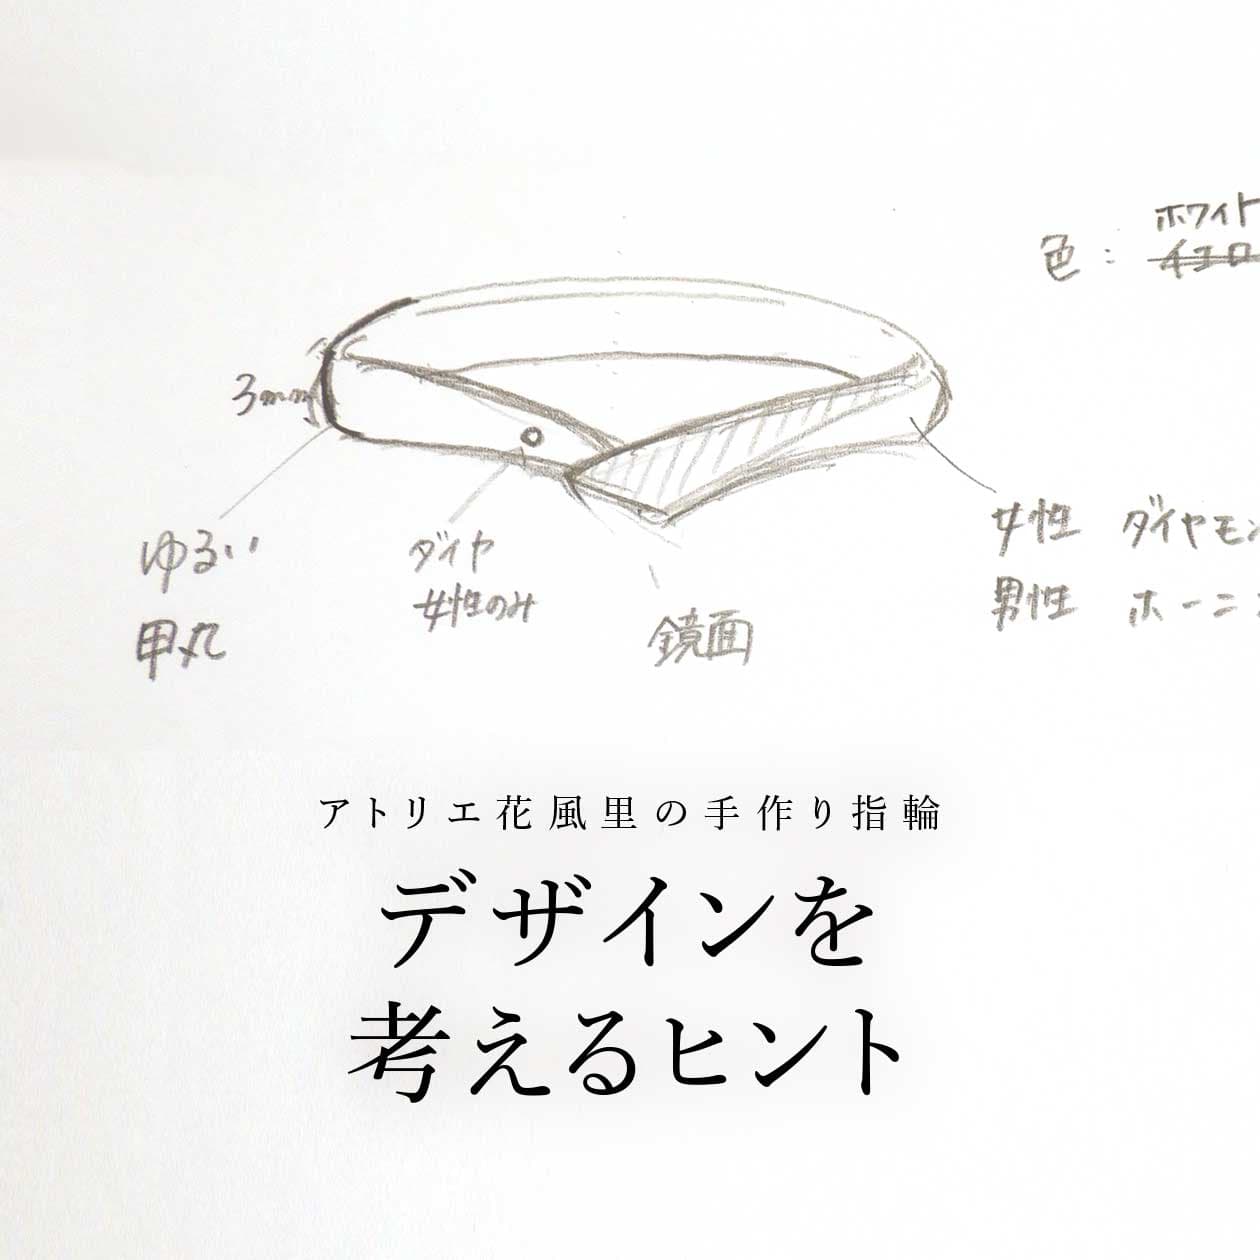 ホワイト
色：イエロ
3mm
ゆるい
甲丸
ダイヤ
女性のみ
鏡面
女性 ダイヤモン
男性 ホーニン
アトリエ花風里の手作り指輪
デザインを
考えるヒント